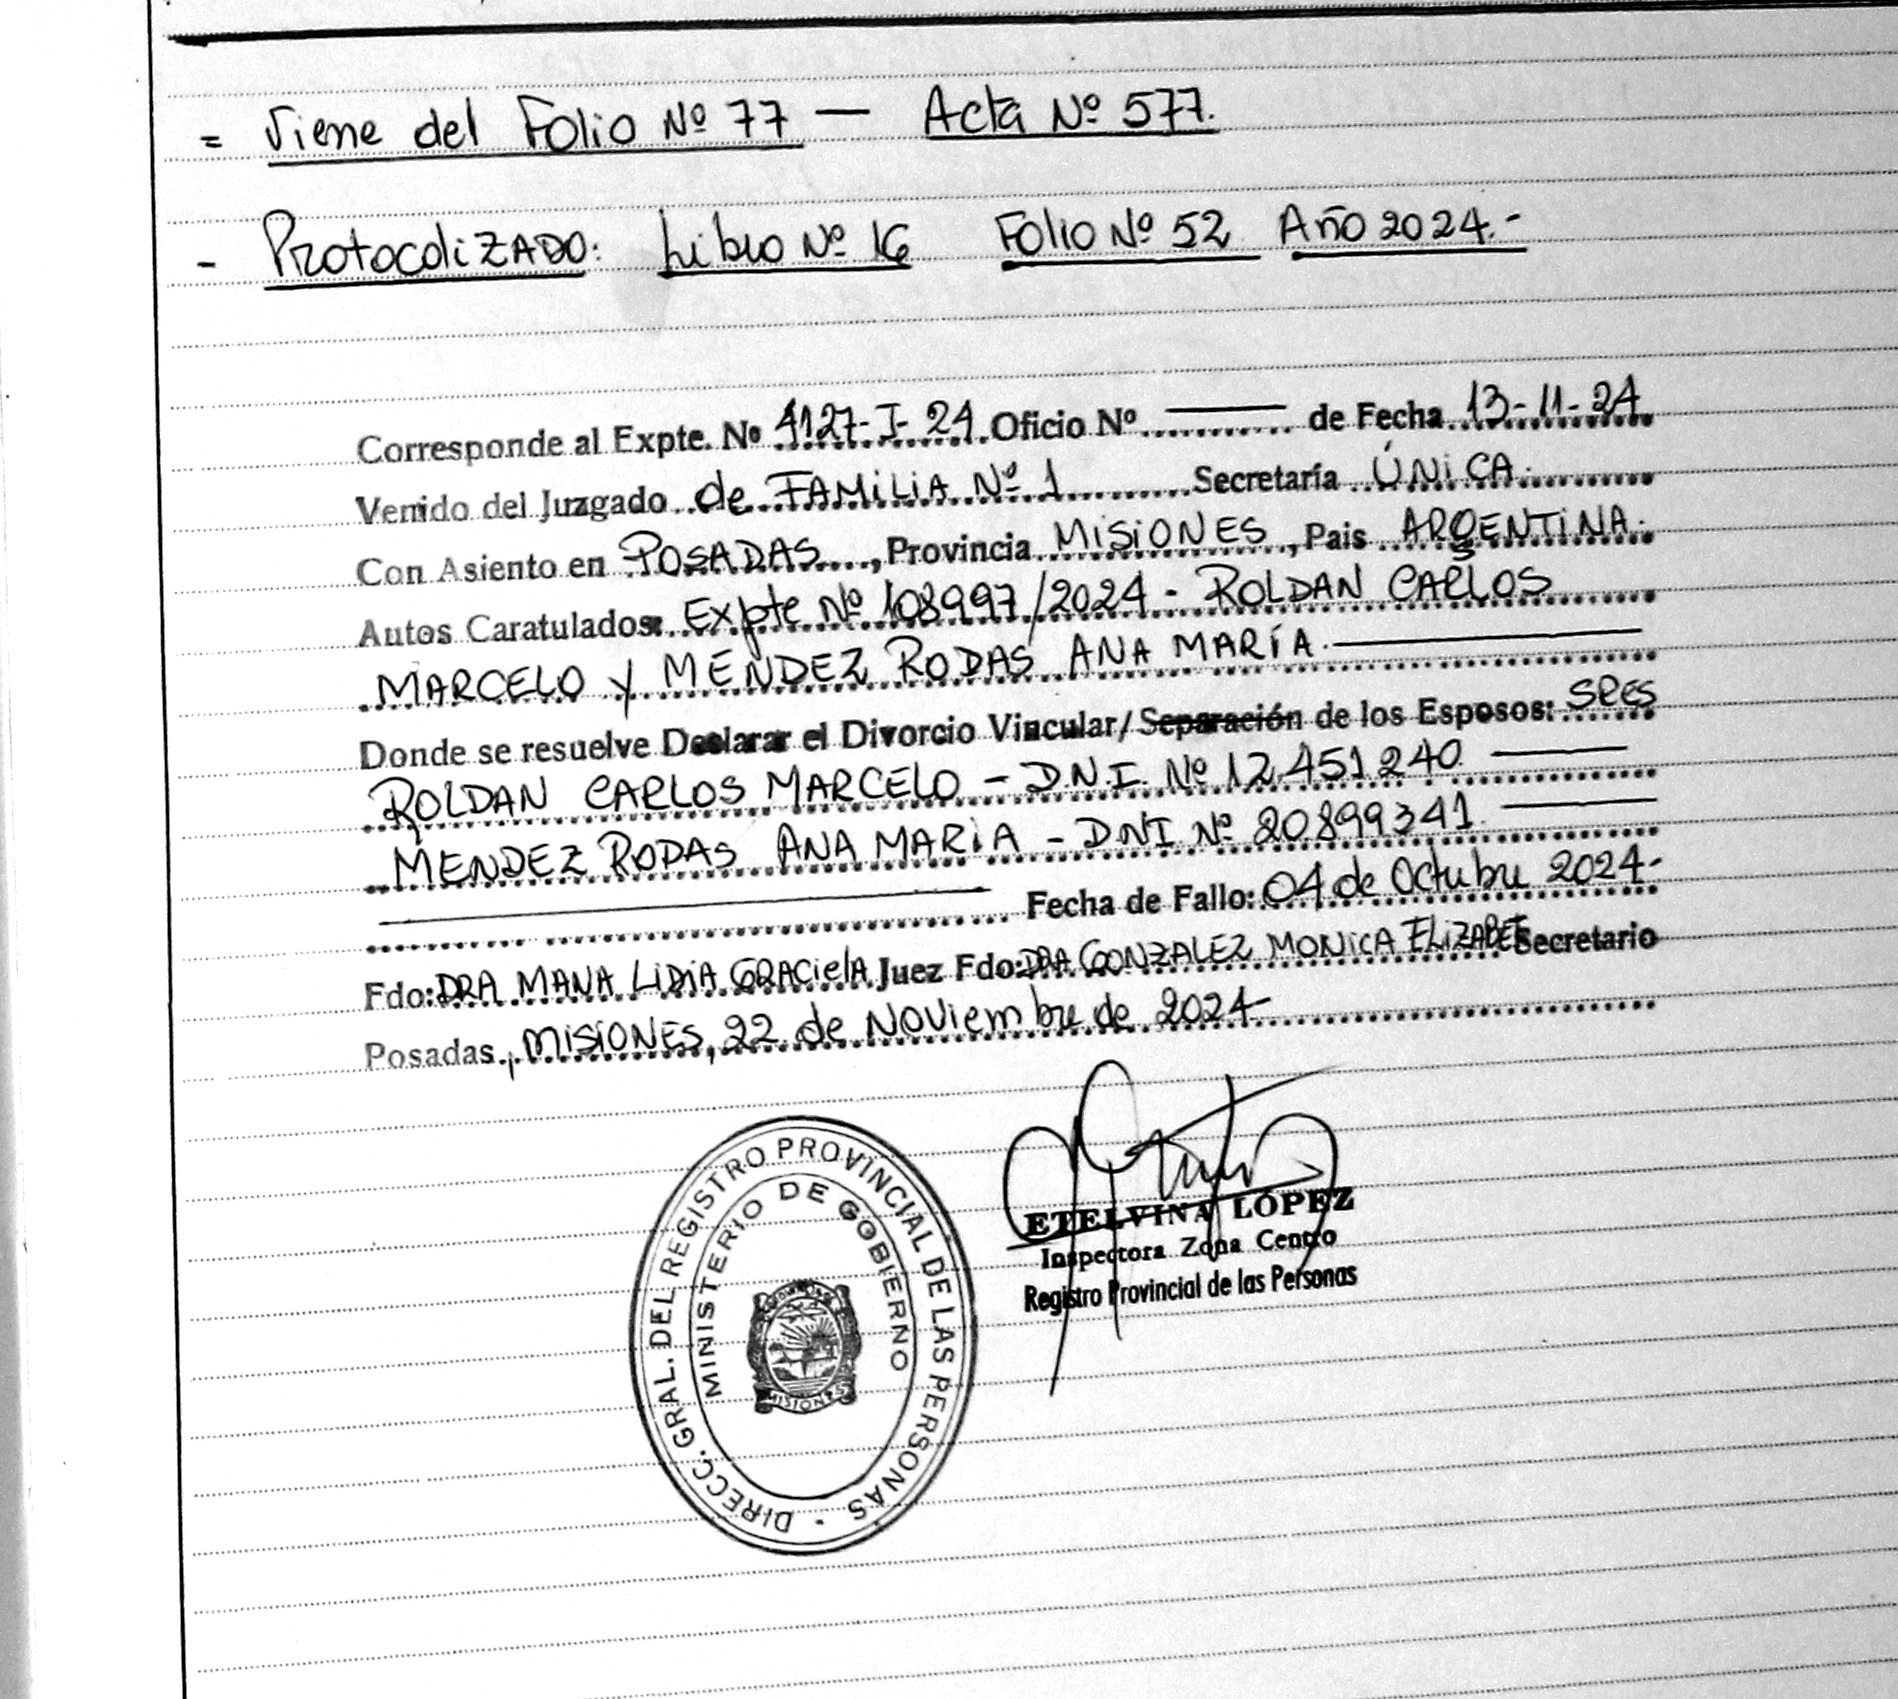 = Viene del Folio Nº 77 — Acta Nº 577.
- Protocolizado: Libro Nº 16 Folio Nº 52 Año 2024.-
Corresponde al Expte. Nº 4127-I-24 Oficio Nº ——— de Fecha 13-11-24
Venido del Juzgado de FAMILIA Nº 1 Secretaría ÚNICA.
Con Asiento en POSADAS, Provincia MISIONES, Pais ARGENTINA.
Autos Caratulados: Expte Nº 108997/2024 - ROLDAN CARLOS
MARCELO y MENDEZ RODAS ANA MARÍA.
Donde se resuelve Declarar el Divorcio Vincular/Separación de los Esposos: SRES
ROLDAN CARLOS MARCELO - D.N.I. Nº 12.451240.
MENDEZ RODAS ANA MARIA - DNI Nº 20899341.
Fecha de Fallo: 04 de Octubre 2024.
Fdo: DRA MANA LIDIA GRACIELA Juez Fdo: DRA GONZALEZ MONICA ELIZABET Secretario
Posadas, MISIONES, 22 de Noviembre de 2024
DIRECC. GRAL. DEL REGISTRO PROVINCIAL DE LAS PERSONAS
MINISTERIO DE GOBIERNO
MISIONES
ETELVINA LÓPEZ
Inspectora Zona Centro
Registro Provincial de las Personas